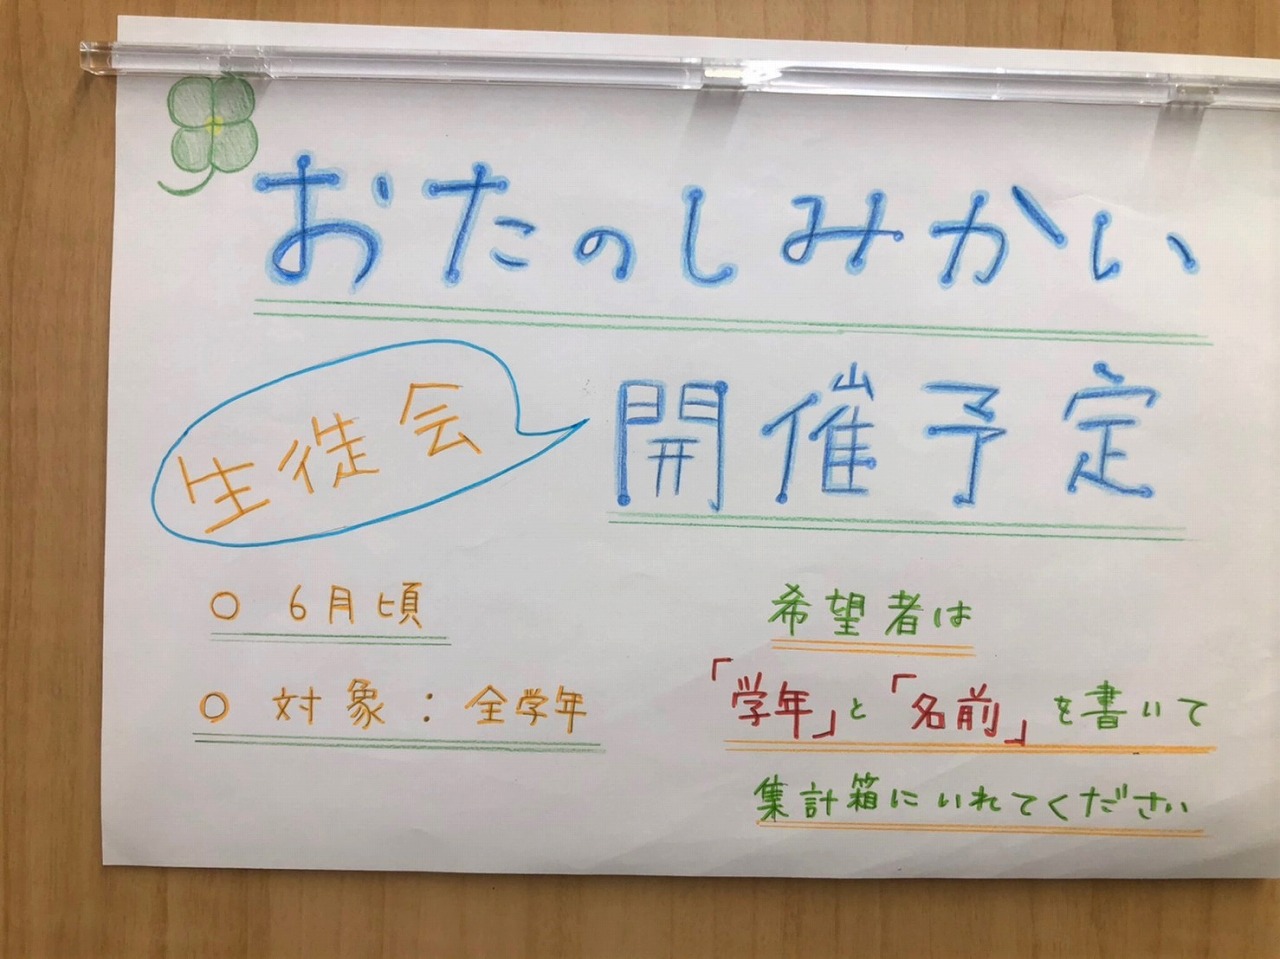 おたのしみかい
生徒会
開催予定
○ 6月頃
○ 対象：全学年
希望者は
「学年」と「名前」を書いて
集計箱にいれてください